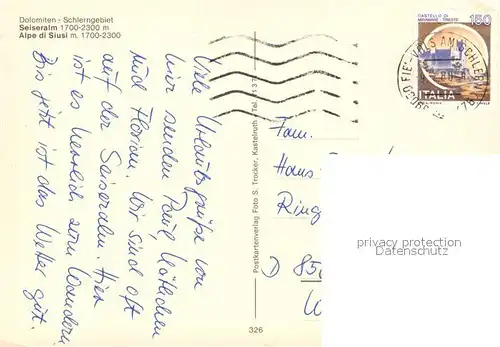 Dolomiten - Schlerngebiet
Seiseralm 1700-2300 m
Alpe di Siusi m. 1700-2300
Viele Urlaubsgrüße von
hier senden Paul, Kätchen
und Florian. Wir sind oft
auf der Seiseralm. Hier
ist es herrlich zum Wandern.
Bis jetzt ist das Wetter gut.
Postkartenverlag Foto S. Trocker, Kastelruth Tel. 71 3
326
CASTELLO DI
MIRAMARE - TRIESTE
150
ITALIA
FIE'-VÖLS AM SCHLERN
Fam.
Hans
Ring
D 850
privacy protection
Datenschutz